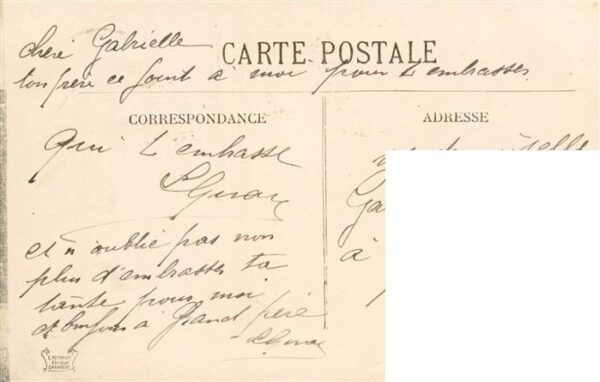 chère Gabrielle
CARTE POSTALE
ton père ce joint à moi pour t'embrasser
CORRESPONDANCE
ADRESSE
Qui t'embrasse
et n'oublie pas non
plus d'embrasser ta
tante pour moi
et bonjour à Grand père
Ga
à